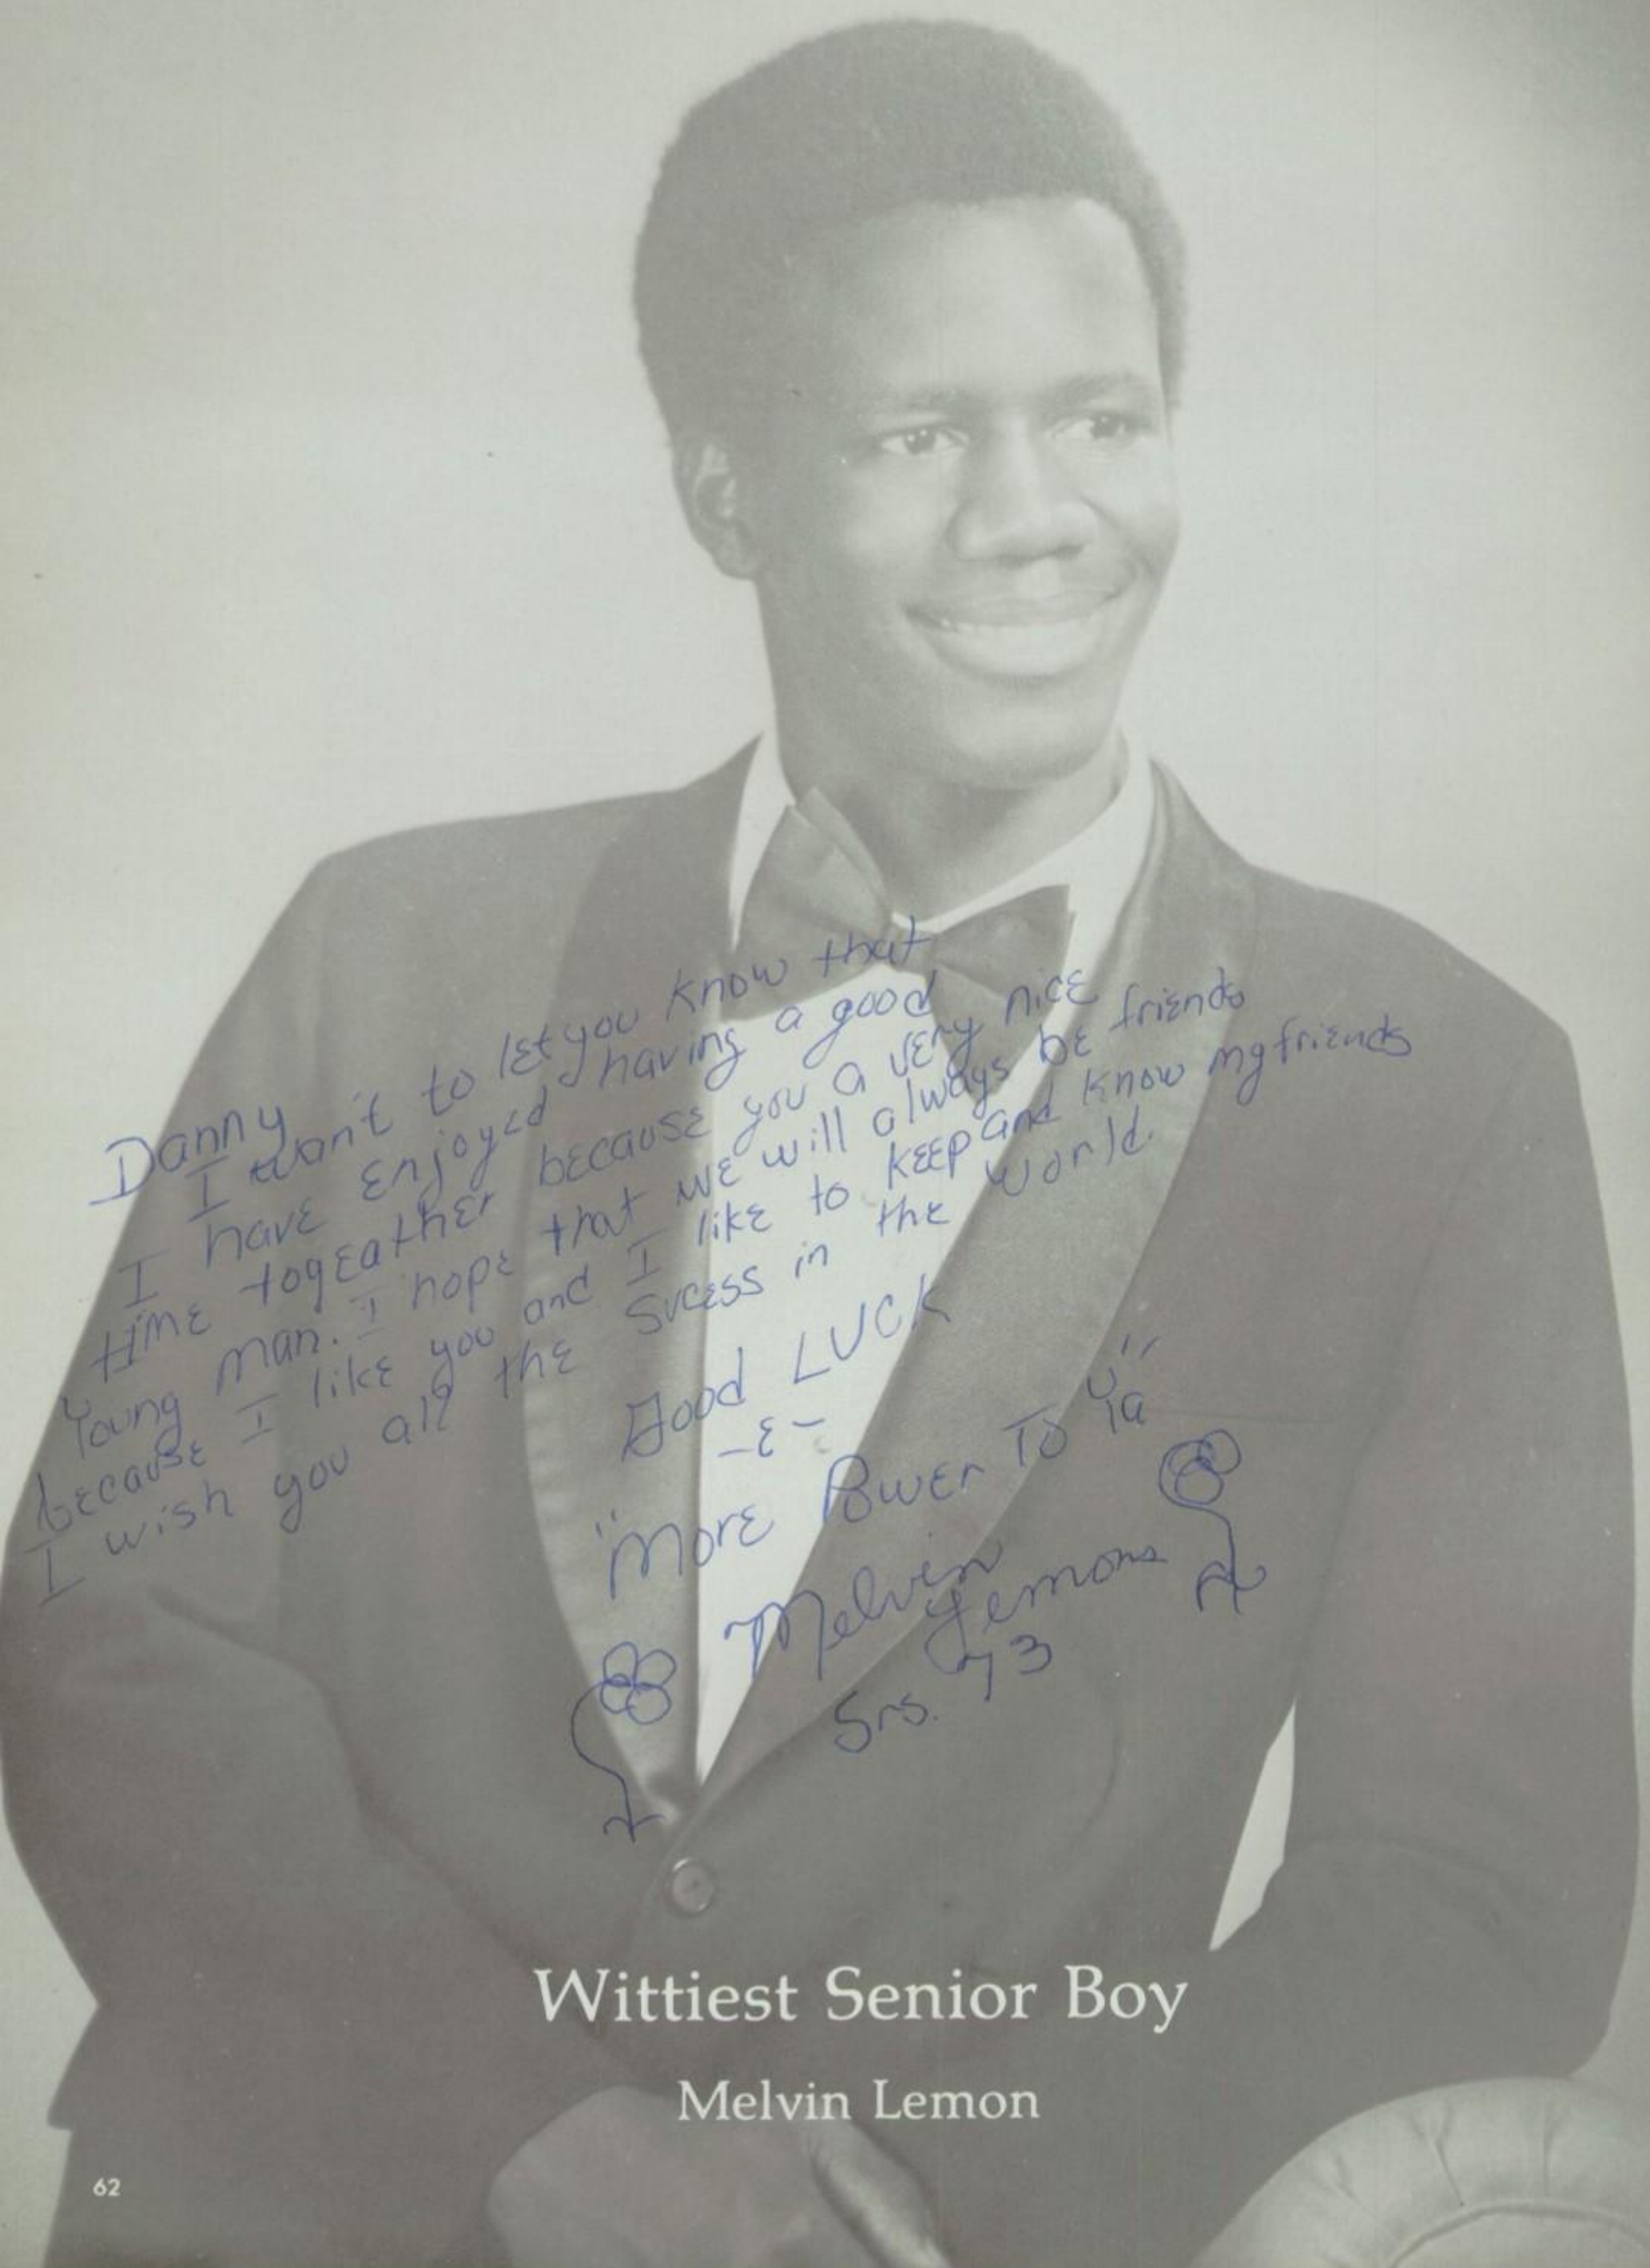 Danny
I want't to let you know that
I have enjoyed having a good
time togeather because you a very nice
Young man. I hope that we will always be friends
because I like you and I like to keep and know my friends
I wish you all the sucess in the world.
Good LUCK
-&-
"More Power To Ya"
Melvin
Lemons
Srs. 73
Wittiest Senior Boy
Melvin Lemon
62